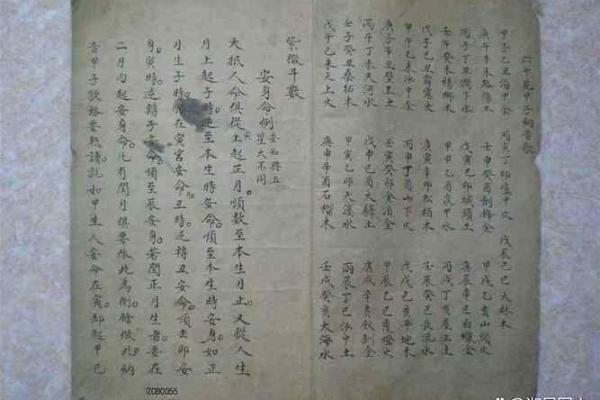 六十花甲子納音歌
甲子乙丑海中金 丙寅丁卯爐中火 戊辰己巳大林木
庚午辛未路傍土 壬申癸酉劍鋒金 甲戌乙亥山頭火
丙子丁丑澗下水 戊寅己卯城頭土 庚辰辛巳白蠟金
壬午癸未楊柳木 甲申乙酉泉中水 丙戌丁亥屋上土
戊子己丑霹靂火 庚寅辛卯松柏木 壬辰癸巳長流水
甲午乙未沙中金 丙申丁酉山下火 戊戌己亥平地木
庚子辛丑壁上土 壬寅癸卯金泊金 甲辰乙巳覆燈火
丙午丁未天河水 戊申己酉大驛土 庚戌辛亥釵釧金
壬子癸丑桑柘木 甲寅乙卯大溪水 丙辰丁巳沙中土
戊午己未天上火 庚申辛酉石榴木 壬戌癸亥大海水
紫微斗數
安身命例 與五星大不同
大抵人命俱從寅上起正月順數至本生月止又從人生
月上起子時逆至本生時安命順至本生時安身如正
月生子時就在寅宮安命丑時逆轉丑安命順去卯安
身寅時逆轉子安命順至辰安身若閏正月生者要在
二月內起安身命凡有閏月俱要依此為例餘倣此納
音甲子歌務要熟讀就如甲生人安命在寅卻起甲己
2C80055